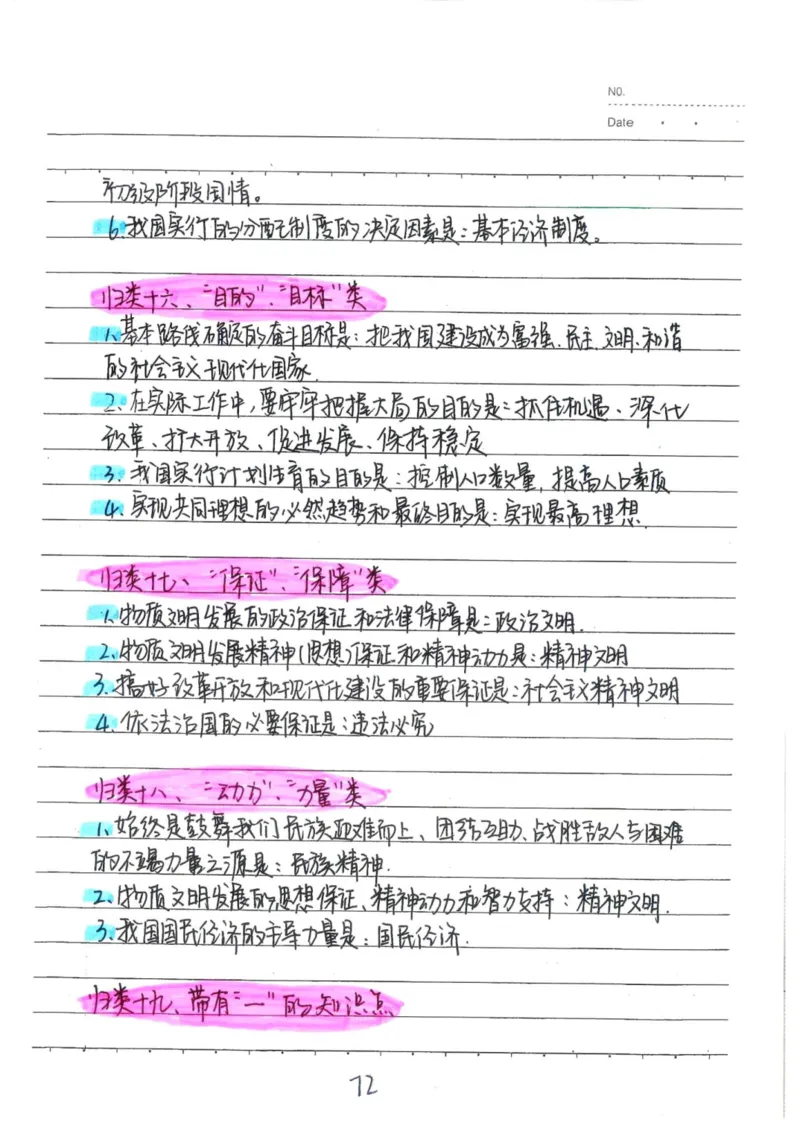 NO.
Date
初级阶段国情。
6.我国实行的分配制度的决定因素是：基本经济制度。
归类十六、“目的”、“目标”类
1.基本路线确定的奋斗目标是：把我国建设成为富强、民主、文明、和谐
的社会主义现代化国家.
2.在实际工作中，要牢牢把握大局的目的是：抓住机遇、深化
改革、扩大开放、促进发展、保持稳定
3.我国实行计划生育的目的是：控制人口数量，提高人口素质
4.实现共同理想的必然趋势和最终目的是：实现最高理想.
归类十七、“保证”、“保障”类
1.物质文明发展的政治保证和法律保障是：政治文明.
2.物质文明发展精神(思想)保证和精神动力是：精神文明
3.搞好改革开放和现代化建设的重要保证是：社会主义精神文明
4.依法治国的必要保证是：违法必究
归类十八、“动力”、“力量”类
1.始终是鼓舞我们民族迎难而上、团结互助、战胜敌人与困难
的不竭力量之源是：民族精神.
2.物质文明发展的思想保证、精神动力和智力支持：精神文明.
3.我国国民经济的主导力量是：国民经济.
归类十九、带有“一”的知识点
72